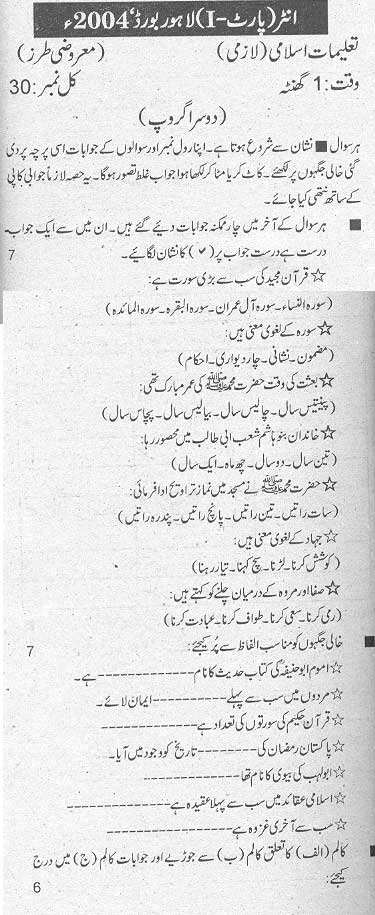 انٹر (پارٹ-I) لاہور بورڈ، 2004ء
تعلیمات اسلامی (لازمی) (معروضی طرز)
وقت: 1 گھنٹہ کل نمبر: 30
(دوسرا گروپ)
ہر سوال ■ نشان سے شروع ہوتا ہے۔ اپنا رول نمبر اور سوالوں کے جوابات اسی پرچہ پر دی
گئی خالی جگہوں پر لکھئے۔ کاٹ کر یا مٹا کر لکھا ہوا جواب غلط تصور ہوگا۔ یہ حصہ لازماً جوابی کاپی
کے ساتھ نتھی کیا جائے۔
■ ہر سوال کے آخر میں چار ممکنہ جوابات دیئے گئے ہیں۔ ان میں سے ایک جواب
درست ہے درست جواب پر (✓) کا نشان لگائیے۔ 7
☆ قرآن مجید کی سب سے بڑی سورت ہے:
(سورہ النساء۔ سورہ آل عمران۔ سورہ البقرہ۔ سورہ المائدہ)
☆ سورہ کے لغوی معنی ہیں:
(مضمون۔ نشانی۔ چار دیواری۔ احکام)
☆ بعثت کی وقت حضرت محمد ﷺ کی عمر مبارک تھی:
(پینتیس سال۔ چالیس سال۔ بیالیس سال۔ پچاس سال)
☆ خاندان بنو ہاشم شعب ابی طالب میں محصور رہا:
(تین سال۔ دو سال۔ چھ ماہ۔ ایک سال)
☆ حضرت محمد ﷺ نے مسجد میں نماز تراویح ادا فرمائی:
(سات راتیں۔ تین راتیں۔ پانچ راتیں۔ پندرہ راتیں)
☆ جہاد کے لغوی معنی ہیں:
(کوشش کرنا۔ لڑنا۔ سچ کہنا۔ تیار رہنا)
☆ صفا اور مروہ کے درمیان چلنے کو کہتے ہیں:
(رمی کرنا۔ سعی کرنا۔ طواف کرنا۔ عبادت کرنا)
■ خالی جگہوں کو مناسب الفاظ سے پُر کیجئے: 7
☆ اموم ابو حنیفہؒ کی کتاب حدیث کا نام ------------ ہے۔
☆ مردوں میں سب سے پہلے --------- ایمان لائے۔
☆ قرآن حکیم کی سورتوں کی تعداد ہے ------------
☆ پاکستان رمضان کی -------- تاریخ کو وجود میں آیا۔
☆ ابو لہب کی بیوی کا نام تھا ------------
☆ اسلامی عقائد میں سب سے پہلا عقیدہ ہے ------------
☆ سب سے آخری غزوہ ہے ------------
■ کالم (الف) کا تعلق کالم (ب) سے جوڑیے اور جوابات کالم (ج) میں درج
کیجئے: 6